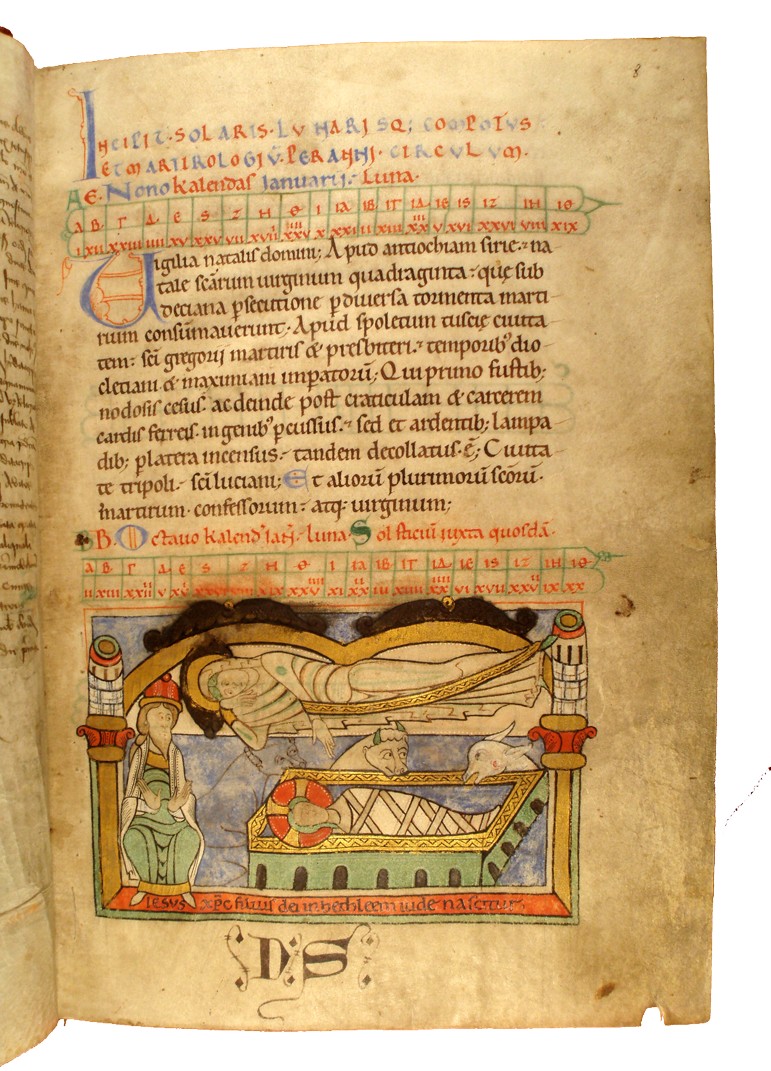 8
INCIPIT · SOLARIS · LUNARISQ; COMPOTUS
ET MARTIROLOGIŪ · PER ANNI · CIRCULUM ·
A E · Nono kalendas Ianuarii · Luna ·
A B Γ Δ E S Z H Θ I IA IB IΓ IΔ IE IS IZ IH IΘ
I XII XXIII IIII XV XXV VII XVII
Uigilia natalis domini; Apud antiochiam sirie · na
tale scārum uirginum quadraginta · quę sub
deciana p̄secutione p̄ diuersa tormenta marti
rium consūmauerunt · Apud spoletum tuscię ciuita
tem · scī gregorii martiris & presbiteri · temporib; dio
cletiani & maximiani imp̄atorū; Qui primo fustib;
nodosis cesus · ac deinde post craticulam & carcerem
cardis ferreis · in genib; p̄cussus · sed et ardentib; lampa
dib; p̄ latera incensus · tandem decollatus · ē; Ciuita
te tripoli · scī luciani; Et aliorū plurimorū scōrū ·
martirum · confessorum · atq; uirginum;
B · Octauo kalend Ian · Luna · Solsticiū iuxta quosdā ·
A B Γ Δ E S Z H Θ I IA IB IΓ IΔ IE IS IZ IH IΘ
II XIII XXII V
IESUS xp̄c filius dei in bethleem iude nascitur
DS